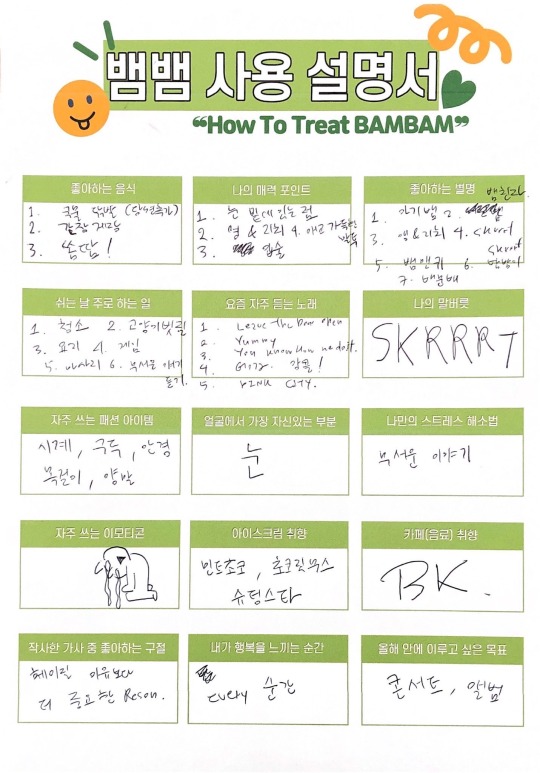 뱀뱀 사용 설명서
“How To Treat BAMBAM”
좋아하는 음식
1. 국물 닭발 (당면추가)
2. 간장게장
3. 쏨땀!
나의 매력 포인트
1. 눈 밑에 있는 점
2. 영 & 리치 4. 애교 가득한
3. 입술
좋아하는 별명
뱀친자
1. 아기뱀 2.
3. 영&리치 4. Skrrt
Skrrt
5. 뱀앤뀌 6.
7.
쉬는 날 주로 하는 일
1. 청소 2. 고양이 빗질
3. 요리 4. 게임
5. 마사지 6. 무서운 얘기
듣기.
요즘 자주 듣는 노래
1. Leave the Door open
2. Yummy
3. You know how we do it.
4.
5. PINK CITY.
나의 말버릇
SKRRRT
자주 쓰는 패션 아이템
시계, 구두, 안경
목걸이, 양말
얼굴에서 가장 자신있는 부분
눈
나만의 스트레스 해소법
무서운 이야기
자주 쓰는 이모티콘
아이스크림 취향
민트초코, 초코릿무스
슈팅스타
카페(음료) 취향
BK.
작사한 가사 중 좋아하는 구절
헤어질 이유보다
더 중요한 Reson.
내가 행복을 느끼는 순간
every 순간
올해 안에 이루고 싶은 목표
콘서트, 앨범